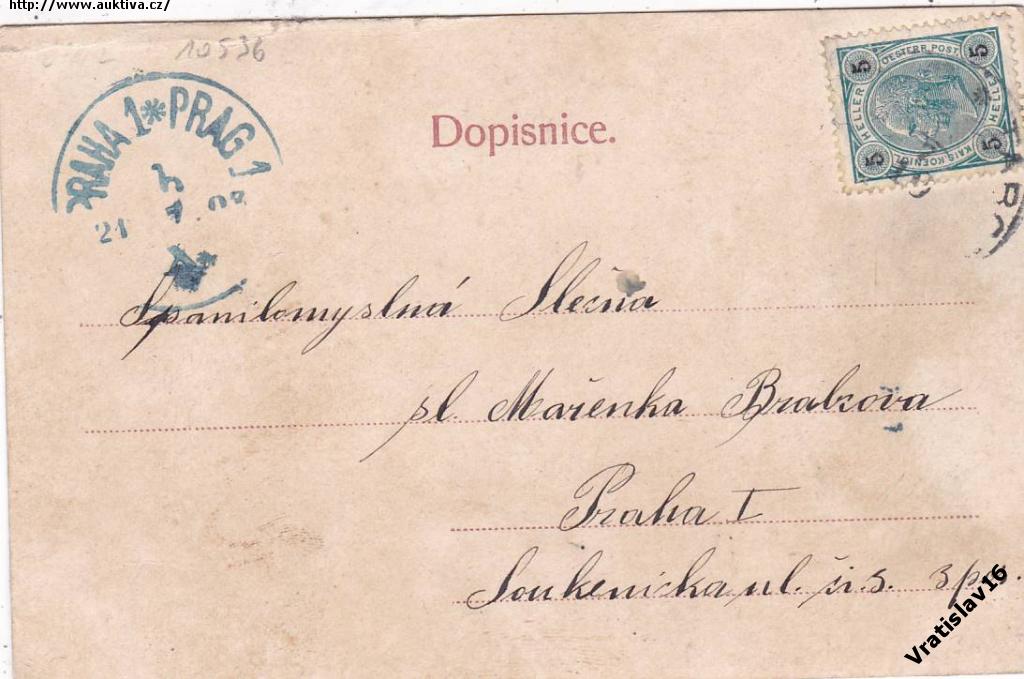 http://www.auktiva.cz/
10536
PRAHA 1 * PRAG 1
21
Dopisnice.
5 OESTERR. POST. 5
HELLER HELLER
5 KAIS. KOENIGL. 5
Spanilomyslná Slečna
sl. Mařenka Brabcova
Praha I
Soukenicka ul. čís. 3
Vratislav16